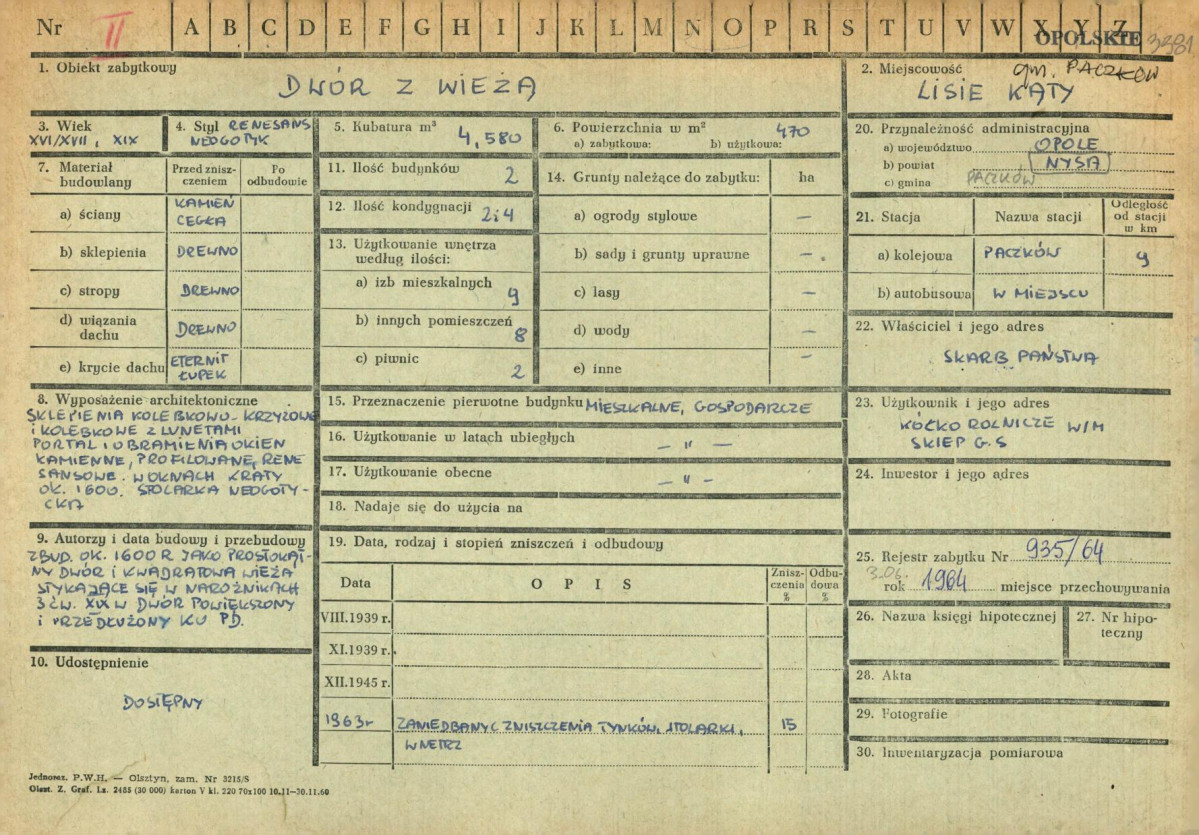 Nr II A B C D E F G H I J K L M N O P R S T U V W X Y Z OPOLSKIE 3381
1. Obiekt zabytkowy
DWÓR Z WIEŻĄ
2. Miejscowość gm. PACZKÓW
LISIE KĄTY
3. Wiek
XVI/XVII, XIX
4. Styl RENESANS
NEOGOTYK
5. Kubatura m³ 4,580
6. Powierzchnia w m² 470
a) zabytkowa: b) użytkowa:
20. Przynależność administracyjna
a) województwo OPOLE
b) powiat NYSA
c) gmina PACZKÓW
7. Materiał budowlany
Przed znisz-
czeniem
Po
odbudowie
a) ściany KAMIEŃ
CEGŁA
b) sklepienia DREWNO
c) stropy DREWNO
d) wiązania
dachu DREWNO
e) krycie dachu ETERNIT
ŁUPEK
11. Ilość budynków 2
12. Ilość kondygnacji 2i4
13. Użytkowanie wnętrza
według ilości:
a) izb mieszkalnych 9
b) innych pomieszczeń 8
c) piwnic 2
14. Grunty należące do zabytku: ha
a) ogrody stylowe –
b) sady i grunty uprawne –
c) lasy –
d) wody –
e) inne –
21. Stacja Nazwa stacji Odległość
od stacji
w km
a) kolejowa PACZKÓW 9
b) autobusowa W MIEJSCU
22. Właściciel i jego adres
SKARB PAŃSTWA
8. Wyposażenie architektoniczne
SKLEPIENIA KOLEBKOWO-KRZYŻOWE
I KOLEBKOWE Z LUNETAMI
PORTAL I OBRAMIENIA OKIEN
KAMIENNE, PROFILOWANE, RENE
SANSOWE. W OKNACH KRATY
OK. 1600. STOLARKA NEOGOTY-
CKA
15. Przeznaczenie pierwotne budynku MIESZKALNE, GOSPODARCZE
16. Użytkowanie w latach ubiegłych – " –
17. Użytkowanie obecne – " –
18. Nadaje się do użycia na
23. Użytkownik i jego adres
KÓŁKO ROLNICZE W/M
SKLEP G.S
24. Inwestor i jego adres
9. Autorzy i data budowy i przebudowy
ZBUD. OK. 1600 R JAKO PROSTOKĄT-
NY DWÓR I KWADRATOWA WIEŻA
STYKAJĄCE SIĘ W NAROŻNIKACH
3 ĆW. XIX W DWÓR POWIĘKSZONY
I PRZEDŁUŻONY KU PD.
10. Udostępnienie
DOSTĘPNY
19. Data, rodzaj i stopień zniszczeń i odbudowy
Data O P I S Znisz-
czenia
% Odbu-
dowa
%
VIII.1939 r.
XI.1939 r.
XII.1945 r.
1963r ZANIEDBANY (ZNISZCZENIA TYNKÓW, STOLARKI, 15
WNĘTRZ
25. Rejestr zabytku Nr 935/64
3.06.
rok 1964 miejsce przechowywania
26. Nazwa księgi hipotecznej
27. Nr hipo-
teczny
28. Akta
29. Fotografie
30. Inwentaryzacja pomiarowa
Jednoraz. P.W.H. — Olsztyn, zam. Nr 3215/S
Olszt. Z. Graf. Lz. 2485 (30 000) karton V kl. 220 70x100 10.11—30.11.60